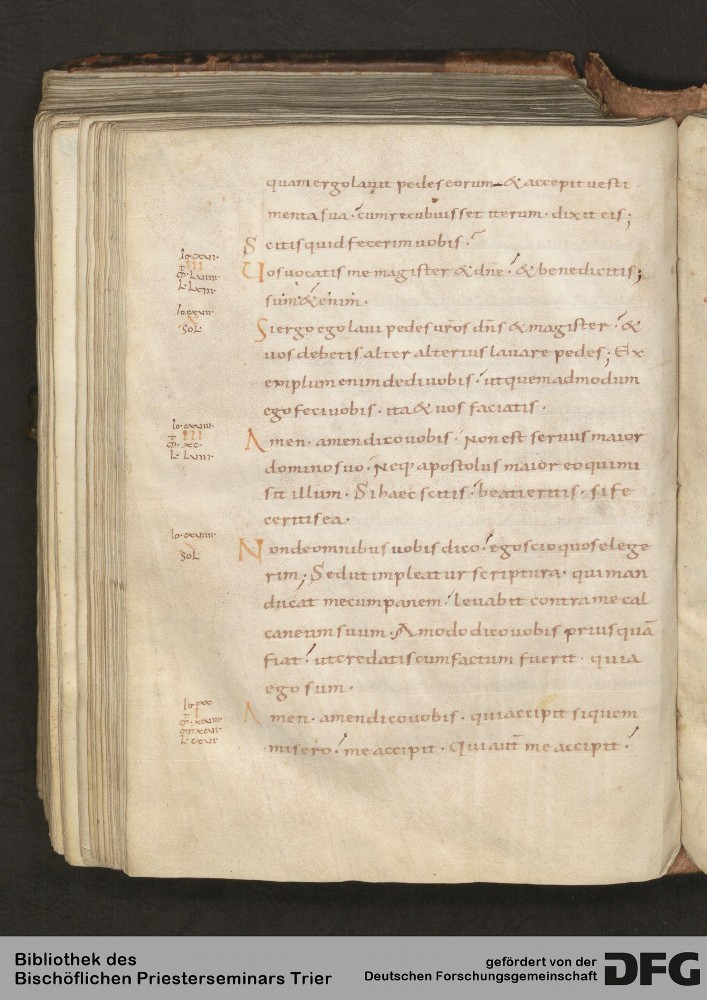 quam ergo lavit pedes eorum & accepit vesti
menta sua. cum recubuisset iterum. dixit eis;
Scitis quid fecerim vobis.
Vos vocatis me magister & dn̄e. & bene dicitis;
sum & enim.
Si ergo ego lavi pedes vr̄os dn̄s & magister. &
vos debetis alter alterius lavare pedes; Ex
emplum enim dedi vobis. ut quemadmodum
ego feci vobis. ita & vos faciatis.
Amen. amen dico vobis. Non est servus maior
domino suo. Neq; apostolus maior eo qui mi
sit illum. Si haec scitis. beati eritis. si fe
ceritis ea.
Non de omnibus vobis dico. ego scio quos elege
rim; Sed ut impleatur scriptura. qui man
ducat mecum panem. levabit contra me cal
caneum suum. A modo dico vobis priusquā
fiat. ut credatis cum factum fuerit. quia
ego sum.
Amen. amen dico vobis. qui accipit si quem
misero. me accipit. Qui aut̄ me accipit.
Bibliothek des
Bischöflichen Priesterseminars Trier
gefördert von der
Deutschen Forschungsgemeinschaft
DFG